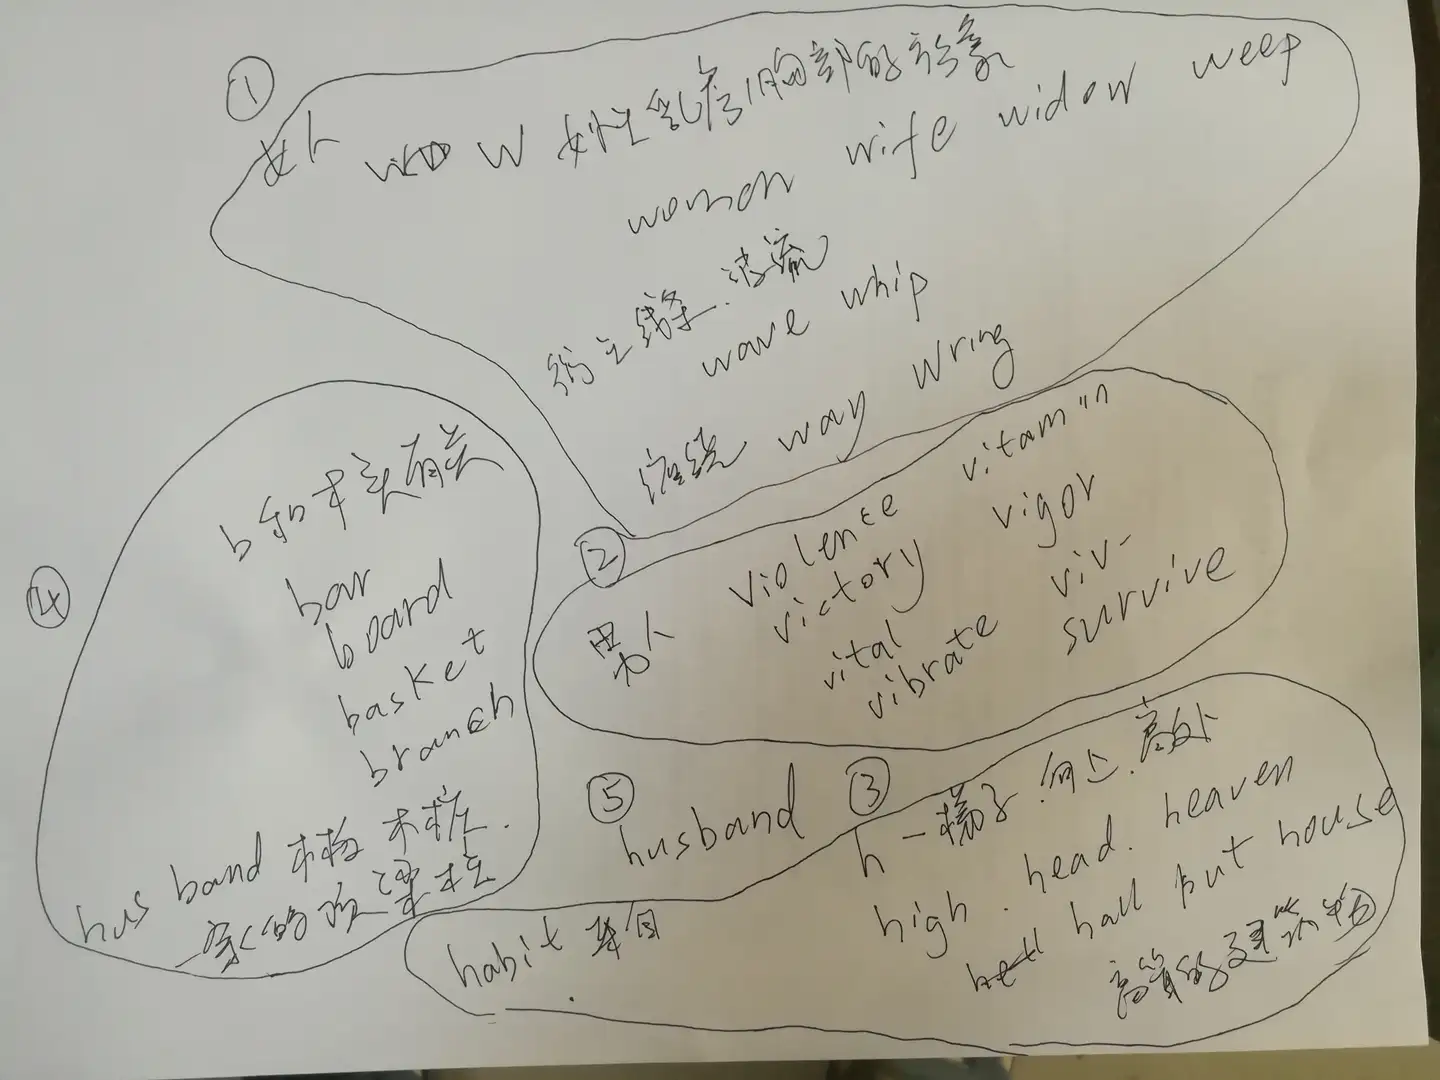 ①
女人 W 女性乳房胸部的形象
woman wife widow weep
线条.波流
wave whip
缠绕 way wring
②
男人
violence vitamin
victory vigor
vital viv-
vibrate survive
③
h 一椅子.向上.高处
high. head. heaven
hall hut house
高耸的建筑物
habit 习惯
④
b和木头有关
bar
board
basket
branch
husband 木板 木桩.
家的顶梁柱
⑤
husband